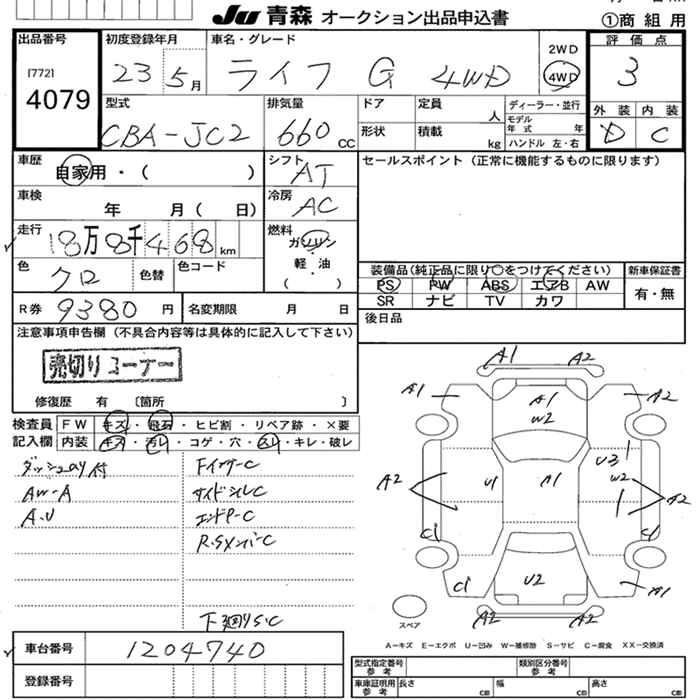 Ju 青森 オークション出品申込書
①商組用
出品番号
[772]
4079
初度登録年月
23 5月
車名・グレード
ライフ G 4WD
2WD
4WD
評価点
3
外装 内装
D C
型式
CBA-JC2
排気量
660cc
ドア
定員
人
形状
積載
kg
ディーラー・並行
モデル年式 年
ハンドル 左・右
車歴
自家用・( )
シフト
AT
車検
年 月( 日)
冷房
AC
セールスポイント(正常に機能するものに限ります)
走行
18万8千468km
燃料
ガソリン
・
軽・油
( )
色
クロ
色替
色コード
装備品(純正品に限り○をつけてください)
PS PW ABS エアB AW
SR ナビ TV カワ
新車保証書
有・無
R券 9380円
名変期限 月 日
後日品
注意事項申告欄(不具合内容等は具体的に記入して下さい)
売切りコーナー
修復歴 有 [箇所 ]
検査員 FW キズ・飛石・ヒビ割・リペア跡・×要
記入欄 内装 キズ・汚れ・コゲ・穴・スレ・キレ・破レ
AW-A
A.U
サイドシルC
エンドP-C
R.Sメンバ-C
下廻りS.C
A1 A2
A1 A1 A2
W2
A2 U1 A1 U3
W2 A2
C1 C1
C1 U2 A1
A2 A2
スペア
A-キズ E-エクボ U-凹み W-補修跡 S-サビ C-腐食 XX-交換済
車台番号 1204740
登録番号
型式指定番号
参考
類別区分番号
参考
車庫証明用
参考
長さ cm 幅 cm 高さ cm